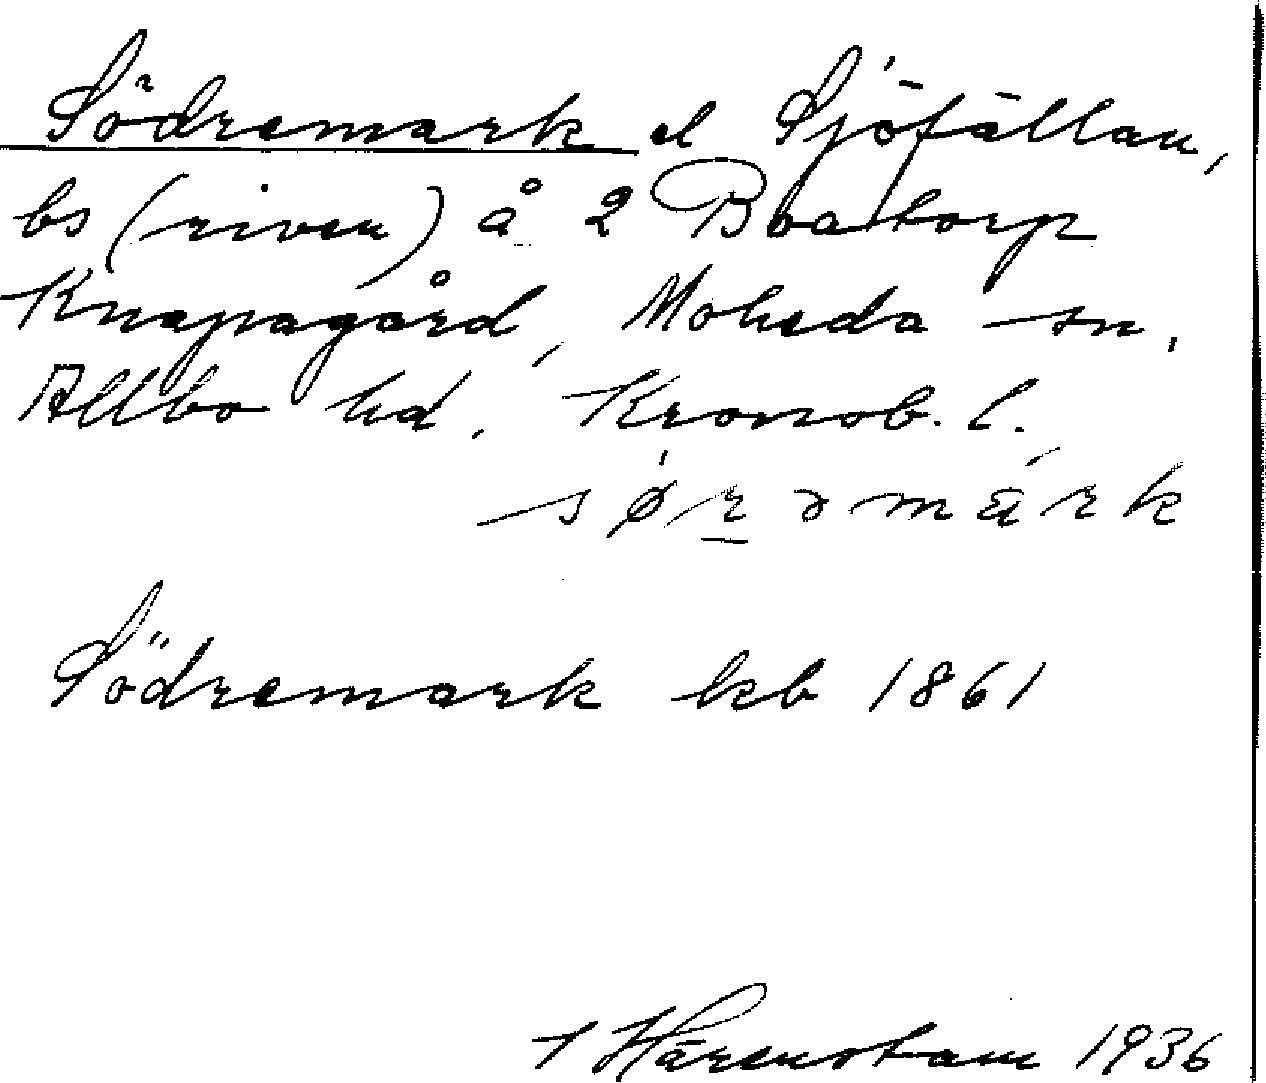 Södremark el Sjöfällan,
bs (riven) å 2 Boatorp
Knapagård, Moheda sn,
Allbo hd, Kronob. l.
sø̀rəmárk
Södremark kb 1861
Härenstam 1936